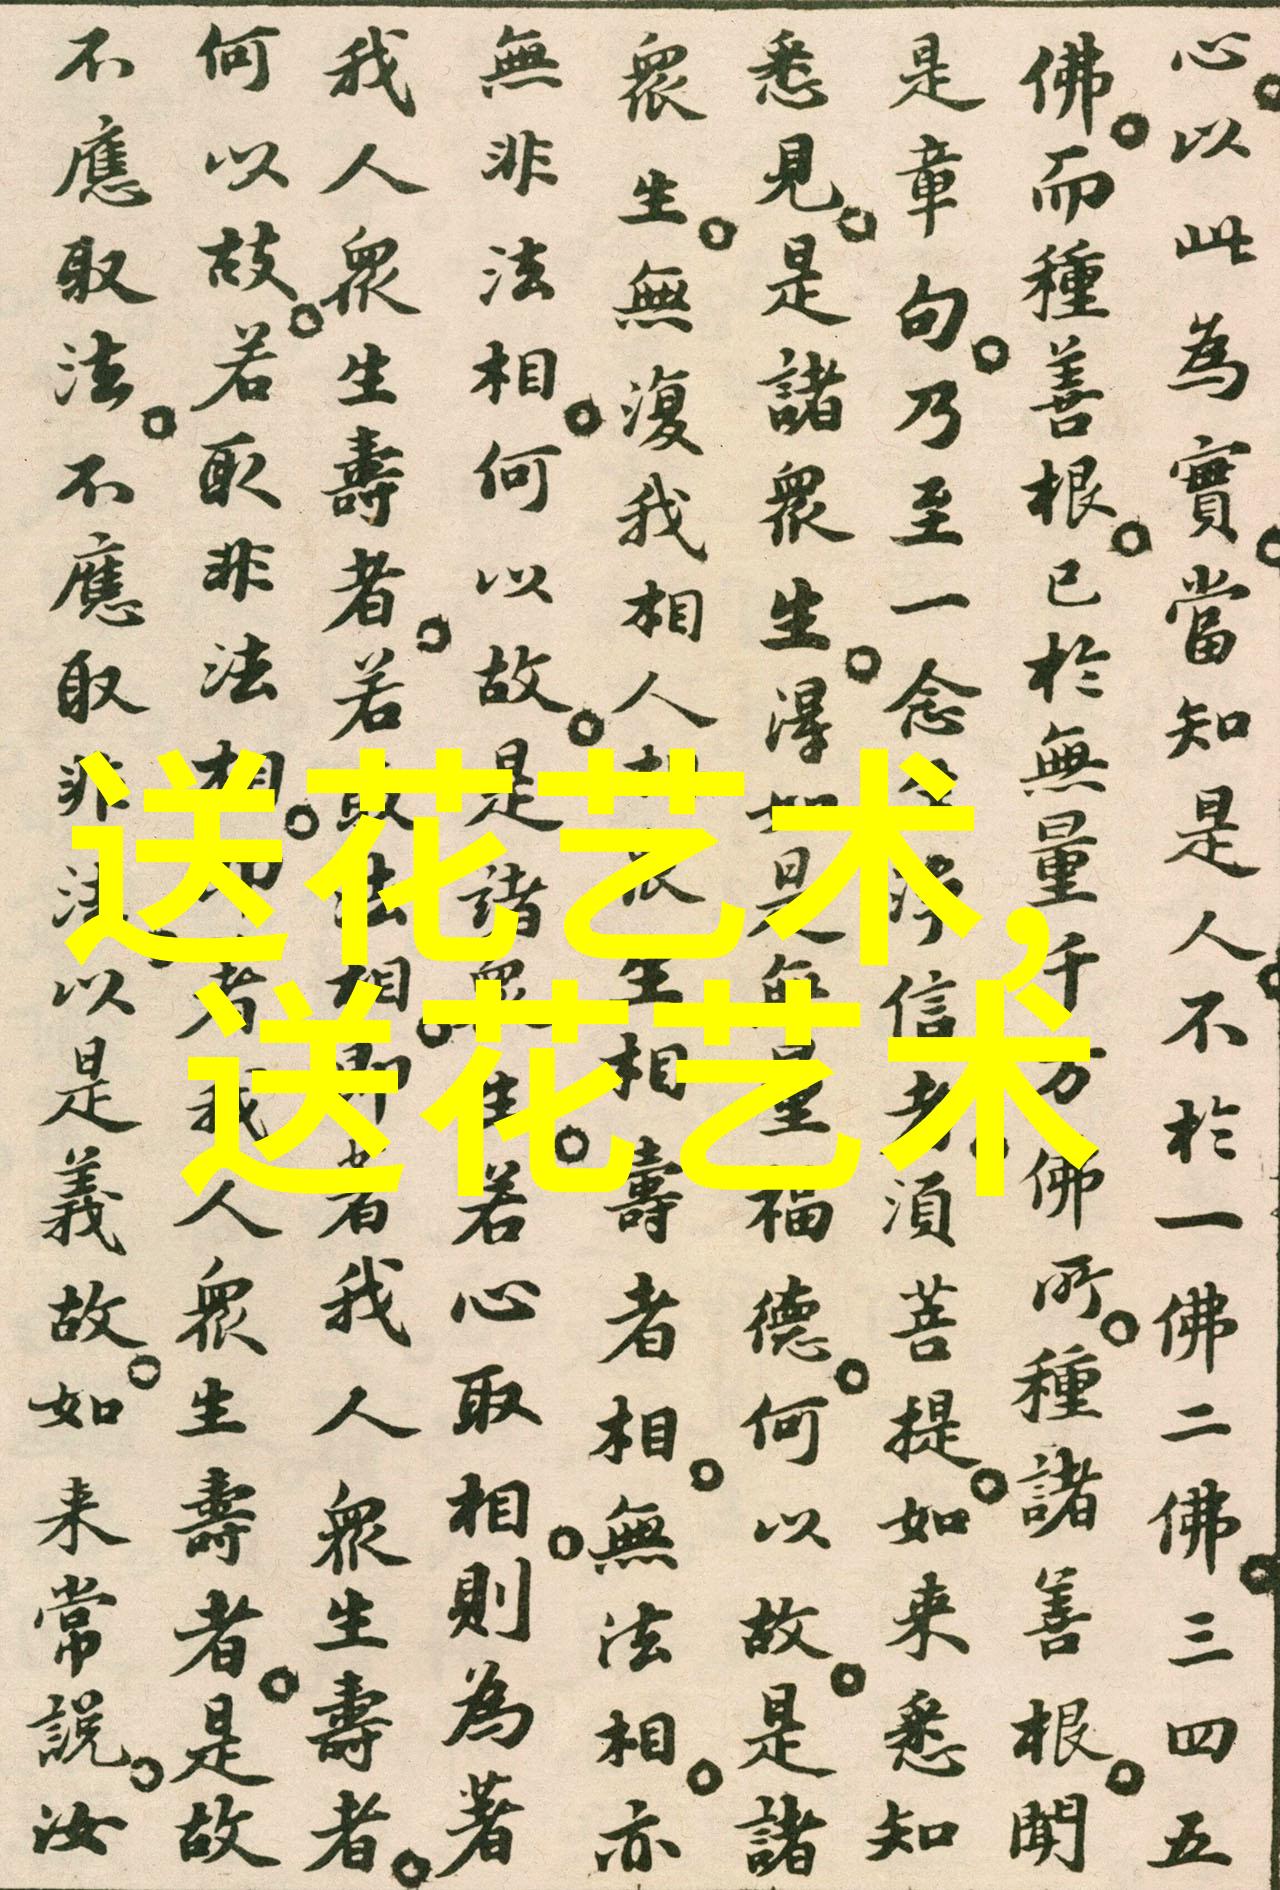 心。以此為實。當知是人。不於一佛二佛。三四五
佛。而種善根。已於無量千万佛所。種諸善根。聞
是章句。乃至一念生淨信者。須菩提。如来悉知
悉見。是諸衆生。淂如是無量福德。何以故。是諸
衆生。無復我相人相衆生相壽者相。無法相。亦
無非法相。何以故。是諸衆生。若心取相。則為著
我人衆生壽者。若取法相。即著我人衆生壽者。
何以故。若取非法相。即著我人衆生壽者。是故
不應取法。不應取非法。以是義故。如来常説。汝
送花艺术,
送花艺术